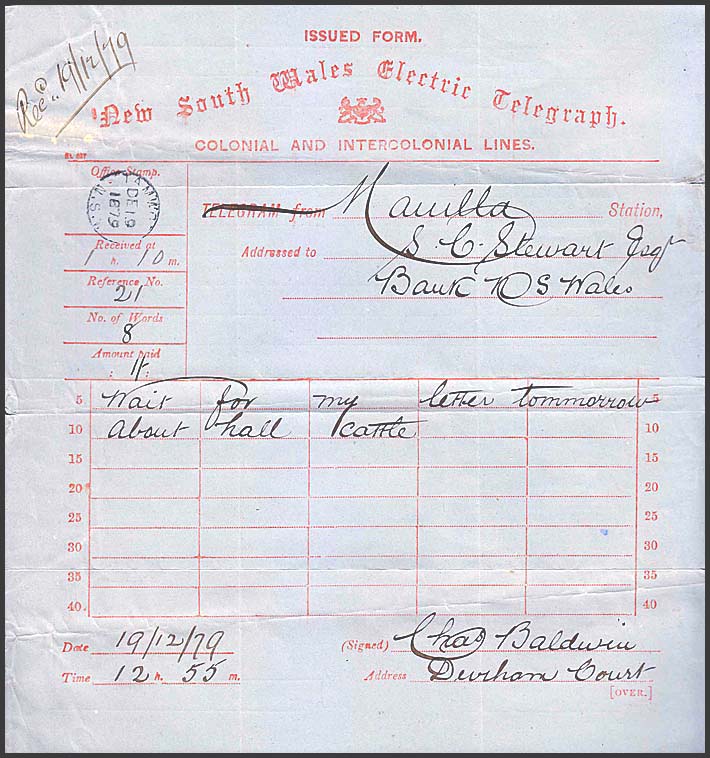 ISSUED FORM.
Recd. 19/12/79
New South Wales Electric Telegraph.
COLONIAL AND INTERCOLONIAL LINES.
Office Stamp.
DE 19
1879
N.S.W
TELEGRAM from Manilla Station,
Received at
1 h. 10 m.
Addressed to S. C. Stewart Esqr
Reference No.
21
Bank N S Wales
No. of Words
8
Amount paid
1/.
5 Wait for my letter tommorrow 5
10 About hall cattle 10
15 15
20 20
25 25
30 30
35 35
40 40
Date 19/12/79 (Signed) Chas Baldwin
Time 12 h. 55 m. Address Durham Court
[OVER.]